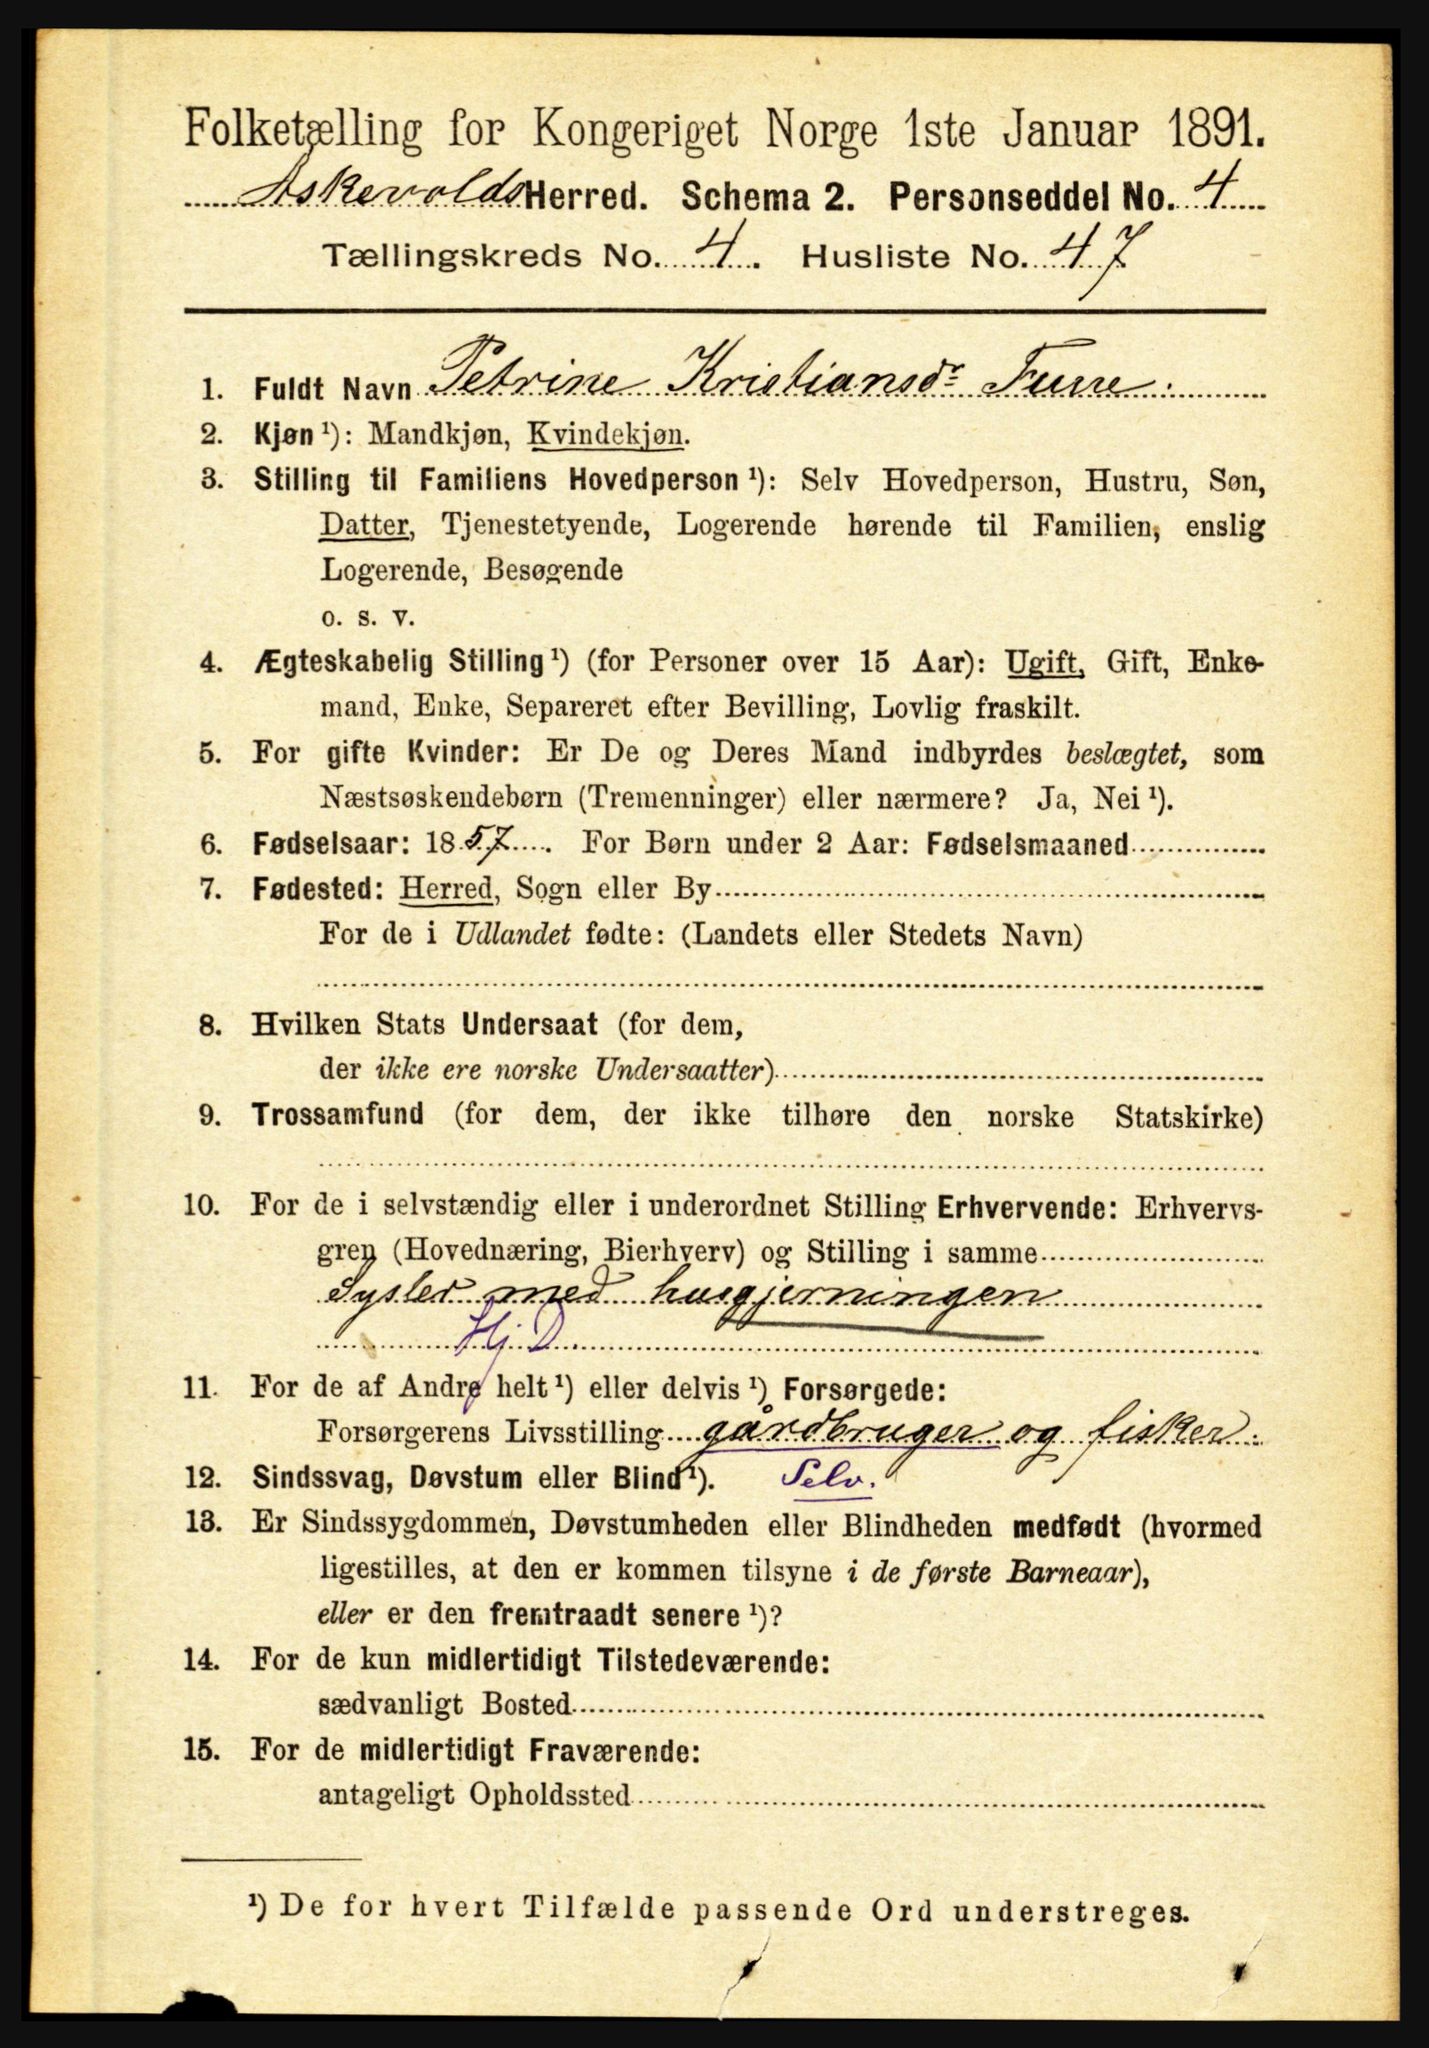 Folketælling for Kongeriget Norge 1ste Januar 1891.
Askevolds Herred. Schema 2. Personseddel No. 4
Tællingskreds No. 4. Husliste No. 47
1. Fuldt Navn Petrine Kristiansdr Furre.
2. Kjøn ¹): Mandkjøn, Kvindekjøn.
3. Stilling til Familiens Hovedperson ¹): Selv Hovedperson, Hustru, Søn,
Datter, Tjenestetyende, Logerende hørende til Familien, enslig
Logerende, Besøgende
o. s. v.
4. Ægteskabelig Stilling ¹) (for Personer over 15 Aar): Ugift, Gift, Enke-
mand, Enke, Separeret efter Bevilling, Lovlig fraskilt.
5. For gifte Kvinder: Er De og Deres Mand indbyrdes beslægtet, som
Næstsøskendebørn (Tremenninger) eller nærmere? Ja, Nei ¹).
6. Fødselsaar: 1857. For Børn under 2 Aar: Fødselsmaaned
7. Fødested: Herred, Sogn eller By
For de i Udlandet fødte: (Landets eller Stedets Navn)
8. Hvilken Stats Undersaat (for dem,
der ikke ere norske Undersaatter)
9. Trossamfund (for dem, der ikke tilhøre den norske Statskirke)
10. For de i selvstændig eller i underordnet Stilling Erhvervende: Erhvervs-
gren (Hovednæring, Bierhverv) og Stilling i samme
Sysler med husgjerningen
Hj. D.
11. For de af Andre helt ¹) eller delvis ¹) Forsørgede:
Forsørgerens Livsstilling gårdbruger og fisker.
12. Sindssvag, Døvstum eller Blind ¹). Selv.
13. Er Sindssygdommen, Døvstumheden eller Blindheden medfødt (hvormed
ligestilles, at den er kommen tilsyne i de første Barneaar),
eller er den fremtraadt senere ¹)?
14. For de kun midlertidigt Tilstedeværende:
sædvanligt Bosted
15. For de midlertidigt Fraværende:
antageligt Opholdssted
¹) De for hvert Tilfælde passende Ord understreges.